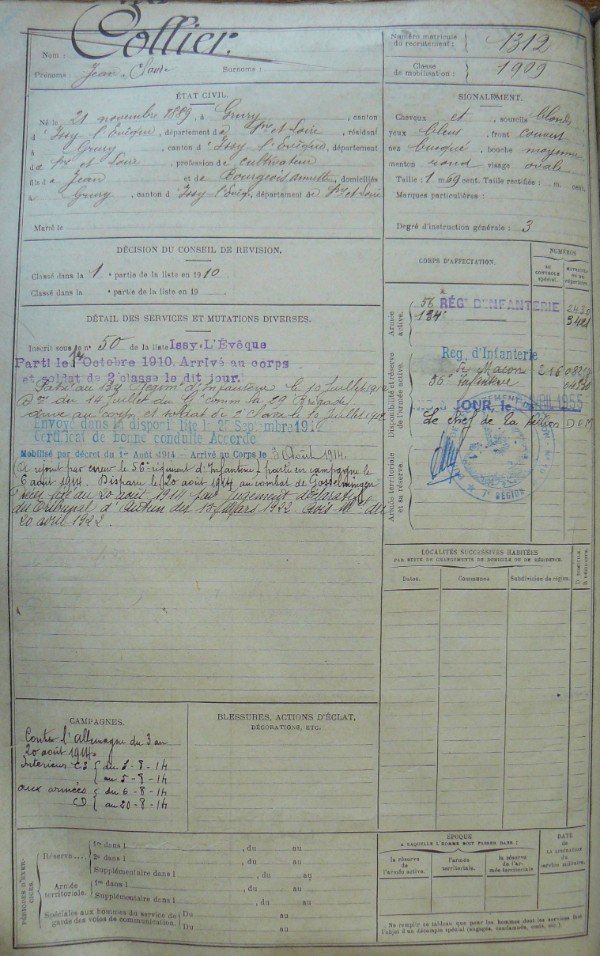 Nom : Collier.
Prénoms : Jean Surnoms :
Numéro matricule
du recrutement : 1312
Classe
de mobilisation : 1909
ÉTAT CIVIL.
Né le 21 novembre 1889, à Grury, canton
d'Issy l'Evêque, département de Sne et Loire, résidant
à Grury, canton d'Issy l'Evêque, département
de Sne et Loire, profession de cultivateur
fils de Jean et de Bourgeois, domiciliés
à Grury, canton d'Issy l'Evêq, département de Sne et Loire
Marié le
SIGNALEMENT.
Cheveux et sourcils blonds
yeux bleus, front couvert
nez busqué, bouche moyenne
menton rond visage ovale
Taille : 1 m. 69 cent. Taille rectifiée : m. cent.
Marques particulières :
Degré d'instruction générale : 3
DÉCISION DU CONSEIL DE REVISION.
Classé dans la 1e partie de la liste en 1910
Classé dans la partie de la liste en 19
DÉTAIL DES SERVICES ET MUTATIONS DIVERSES.
Inscrit sous le n° 50 de la liste Issy-L'Évêque
Parti le 1er Octobre 1910. Arrivé au corps
et soldat de 2e classe le dit jour.
Passé au 134 Régiment d'Infanterie le 10 Juillet
du 14 Juillet du Gl Comm la 29 Brigade
arrivé au corps et soldat de 2 classe le Juillet
Envoyé dans la disponibilité le 25 Septembre 191
Certificat de bonne conduite Accordé
Mobilisé par décret du 1er Août 1914 - Arrivé au Corps le 3 Août 1914.
A rejoint par erreur le 56e régiment d'Infanterie, parti en campagne le
6 août 1914. Disparu le 20 août 1914 au combat de Gosselmingen
fixé au 20 août 1914 par Jugement déclaratif
du Tribunal d'Autun du 15 Mars 1922. Avis du
20 avril 1922
CORPS D'AFFECTATION.
NUMÉROS
au contrôle spécial
au répertoire
Armée
active.
56e RÉGt D'INFANTERIE
134e
Disponibilité et réserve
de l'armée active.
Reg. d'Infanterie
de Macon
56e Infanterie
JOUR, le
Le Chef de la Section
7e RÉGION
Armée territoriale
et sa réserve
LOCALITÉS SUCCESSIVES HABITÉES
PAR SUITE DE CHANGEMENTS DE DOMICILE OU DE RÉSIDENCE.
Dates. Communes Subdivision de région. D. domicile R. résidence
CAMPAGNES.
Contre l'Allemagne du 3 au
20 août 1914
Intérieur CS du 3-8-14
au 5-8-14
aux armées du 6-8-14
CD au 20-8-14
BLESSURES, ACTIONS D'ÉCLAT,
DÉCORATIONS, ETC.
PÉRIODES D'EXERCICES.
Réserve
1re dans l , du au
2e dans l , du au
Supplémentaire dans l , du au
Armée
territoriale.
1re dans l , du au
Supplémentaire dans l , du au
Spéciales aux hommes du service de
garde des voies de communication. Du au
Du au
ÉPOQUE
À LAQUELLE L'HOMME DOIT PASSER DANS :
la réserve
de l'armée active.
l'armée
territoriale.
la réserve
de l'armée territoriale.
DATE
de la
libération
du
service militaire.
Ne remplir ce tableau que pour les hommes dont les services font
l'objet d'un décompte spécial (engagés, condamnés, omis, etc.)